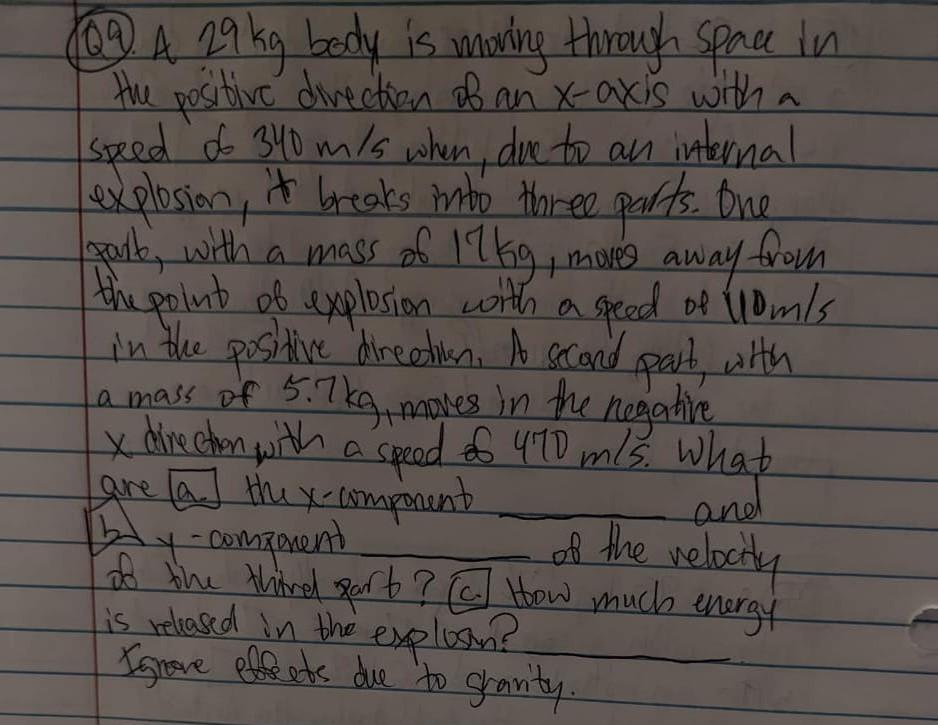 Q9. A 29kg body is moving through space in
the positive direction of an x-axis with a
speed of 340 m/s when, due to an internal
explosion, it breaks into three parts. One
part, with a mass of 17kg, moves away from
the point of explosion with a speed of 110m/s
in the positive direction. A second part, with
a mass of 5.7kg, moves in the negative
x direction with a speed of 470 m/s. What
are a. the x-component ______ and
b. y-component ______ of the velocity
of the third part? c. How much energy
is released in the explosn? ______
Ignore effects due to gravity.